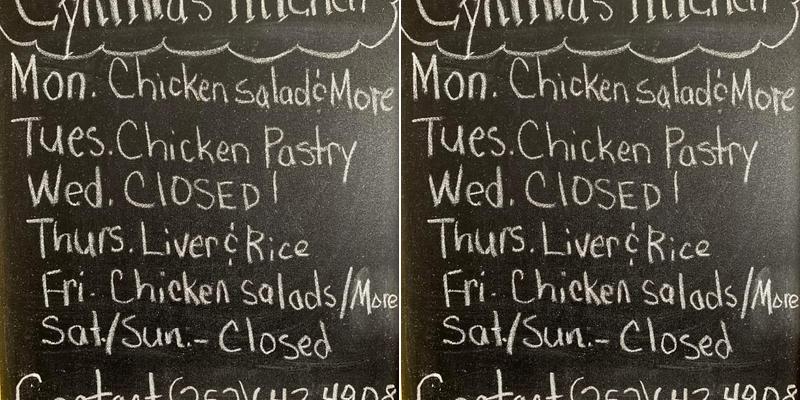 Cynthia's Kitchen Cynthia's Kitchen
Mon. Chicken salad & More Mon. Chicken salad & More
Tues. Chicken Pastry Tues. Chicken Pastry
Wed. ClOSED! Wed. ClOSED!
Thurs. Liver & Rice Thurs. Liver & Rice
Fri. Chicken salads/More Fri. Chicken salads/More
Sat./Sun.- Closed Sat./Sun.- Closed
Contact (252) Contact (252)